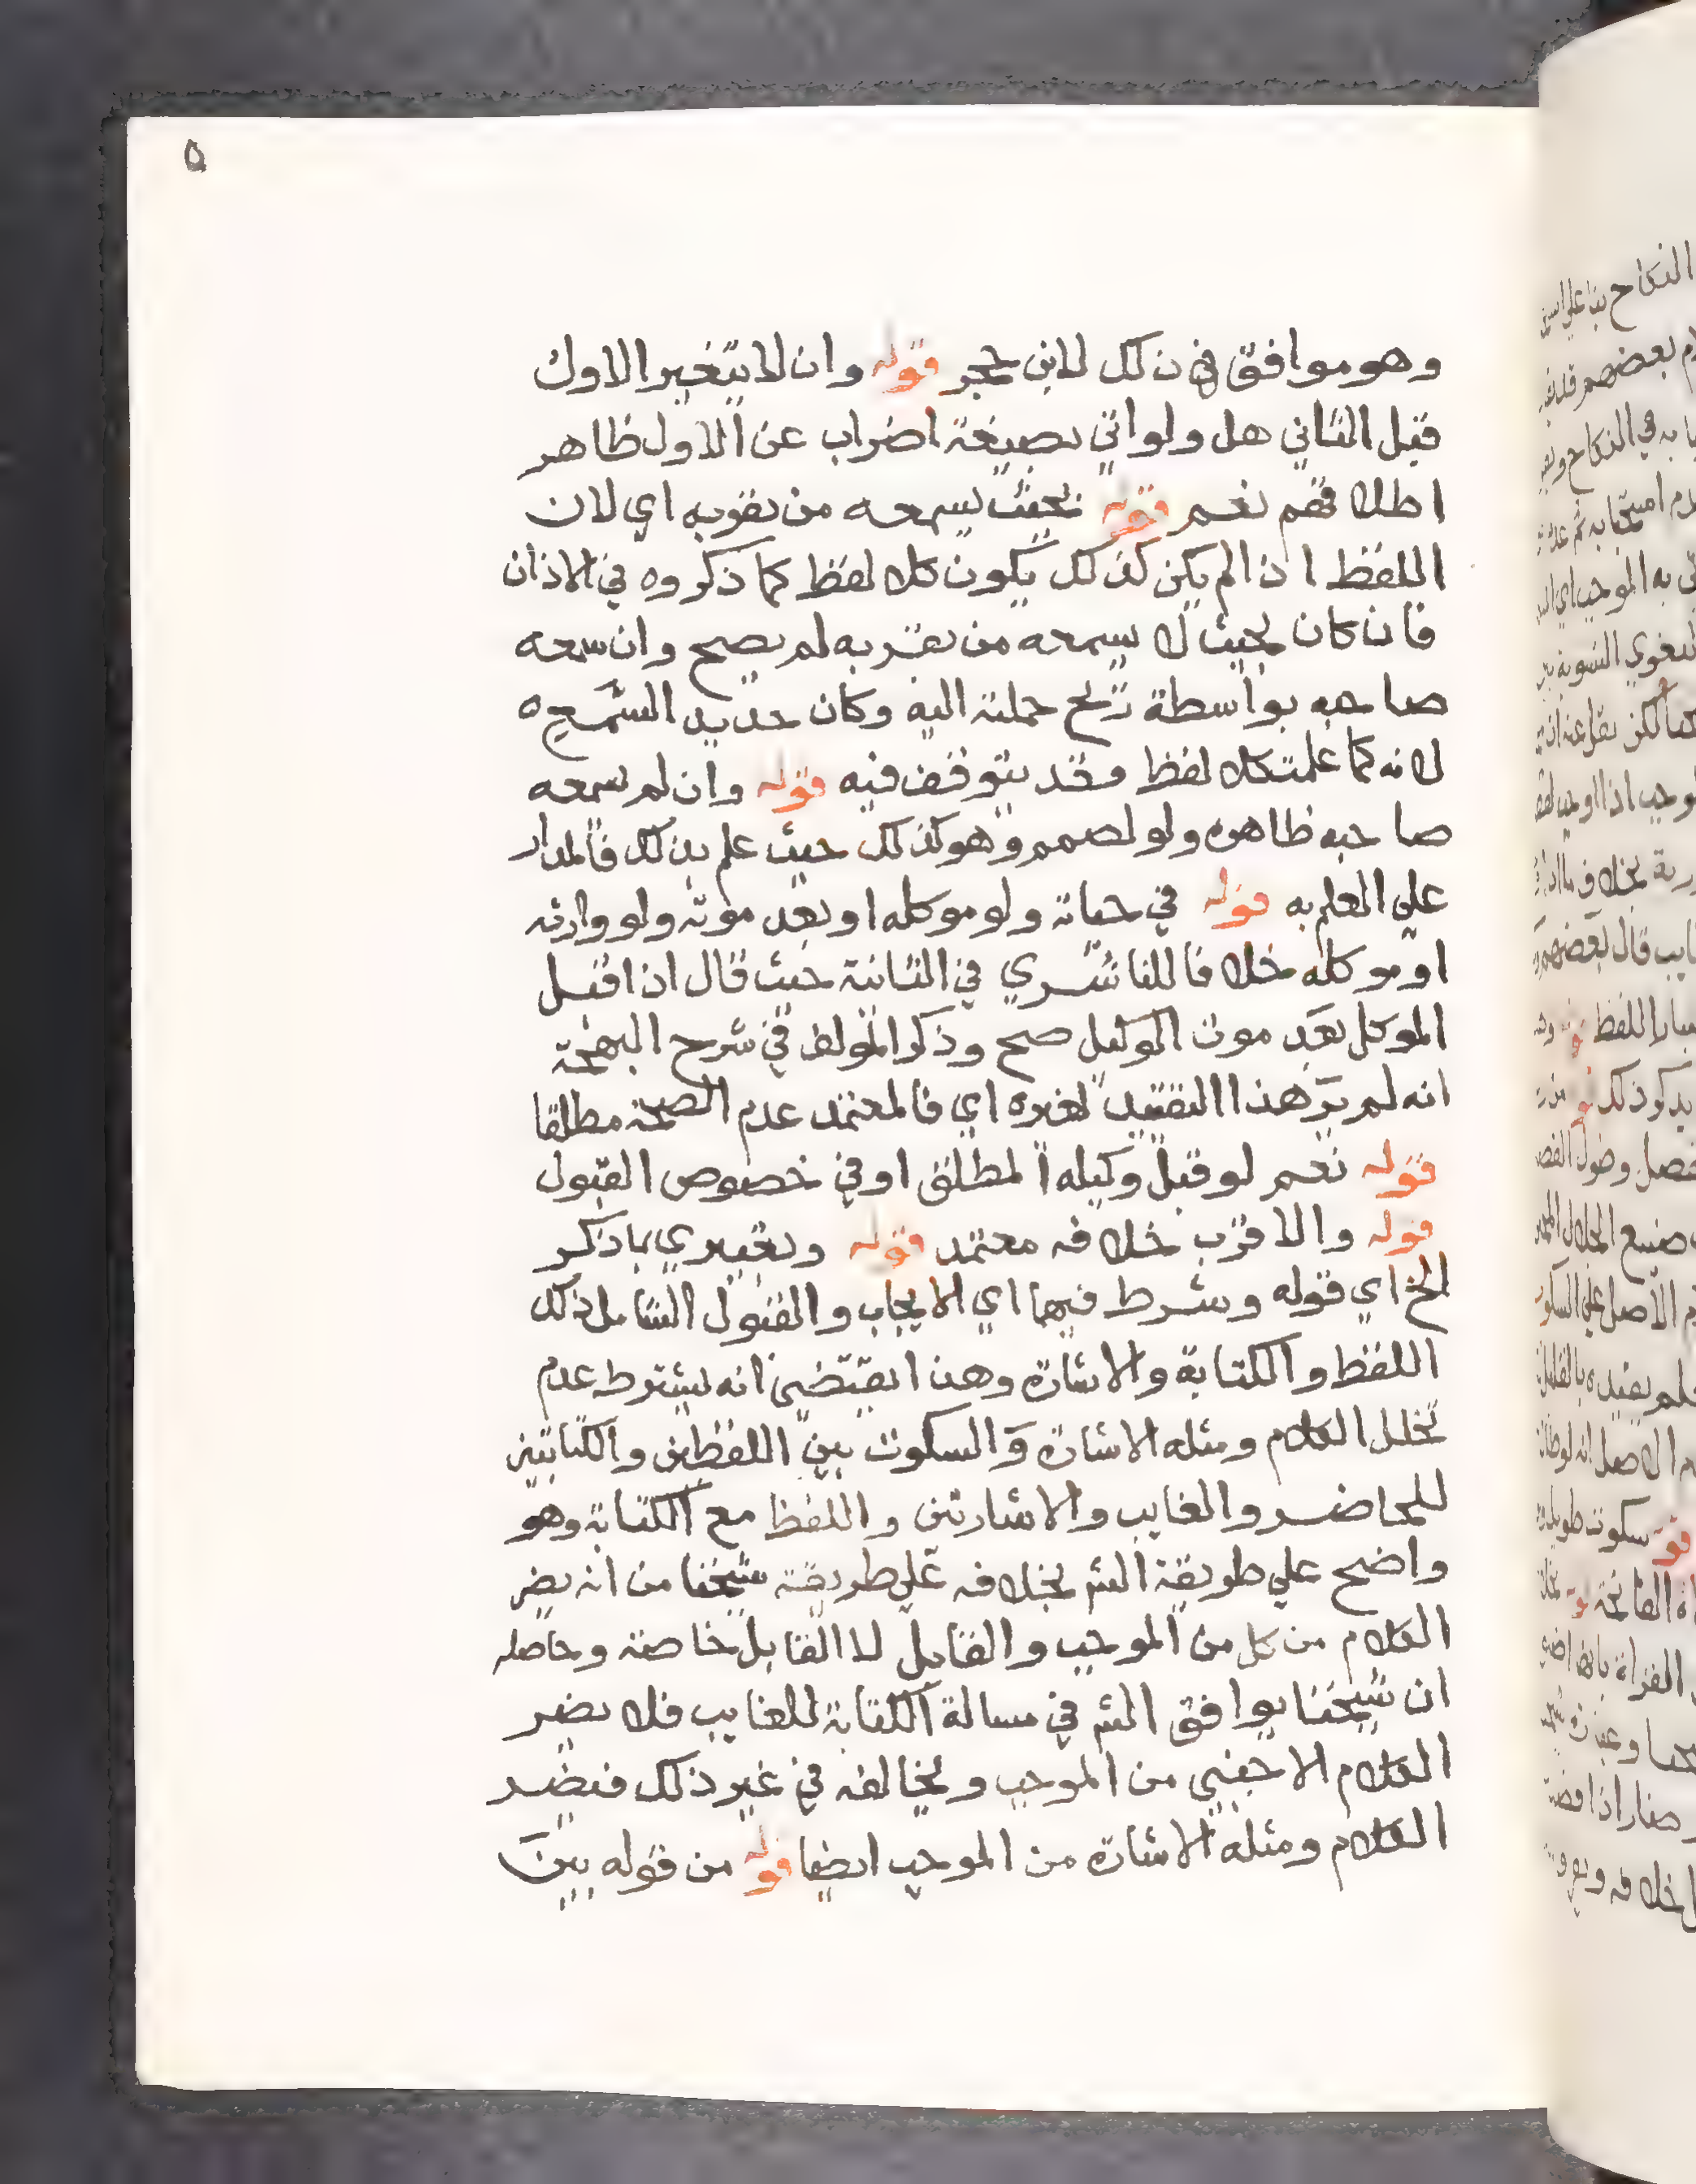 ٥
وهو موافق في ذلك لابن حجر قوله وان لا يتغير الاول
قبل الثاني هل ولو اتي بصيغة اضراب عن الاول ظاهر
اطلاقهم نعم قوله بحيث يسمعه من بقربه اي لان
اللفظ اذا لم يكن كذلك يكون كلا لفظ كما ذكروه في الاذان
فان كان بحيث لا يسمعه من بقربه لم يصح وان سمعه
صاحبه بواسطة ريح حملته اليه وكان حديد السمع ه
لانه كما علمت كلا لفظ وقد يتوقف فيه قوله وان لم يسمعه
صاحبه ظاهره ولو لصمم وهو كذلك حيث علم بذلك فالمدار
علي العلم به قوله في حياته ولو موكله او بعد موته ولو وارثه
او موكله خلافا للناشري في الثانية حيث قال اذا قبل
الموكل بعد موت الوكيل صح وذكر المولف في شرح البهجة
انه لم ير هذا التقييد لغيره اي فالمعتمد عدم الصحة مطلقا
قوله نعم لو قبل وكيله المطلق او في خصوص القبول
قوله والاقرب خلافه معتمد قوله وتعبيري بما ذكر
الخ اي قوله وشرط فيهما اي الايجاب والقبول الشامل ذلك
اللفظ والكتابة والاشارة وهذا يقتضي انه يشترط عدم
تخلل الكلام ومثله الاشارة والسكوت بين اللفظين والكتابتين
للحاضر والغايب والاشارتين واللفظ مع الكتابة وهو
واضح علي طريقة الش بخلافه علي طريقة شيخنا من انه يضر
الكلام من كل من الموجب والقابل لا القابل خاصة وحاصله
ان شيخنا يوافق الش في مسالة الكتابة للغايب فلا يضر
الكلام الاجنبي من الموجب ويخالفه في غير ذلك فيضر
الكلام ومثله الاشارة من الموجب ايضا قوله من قوله بين